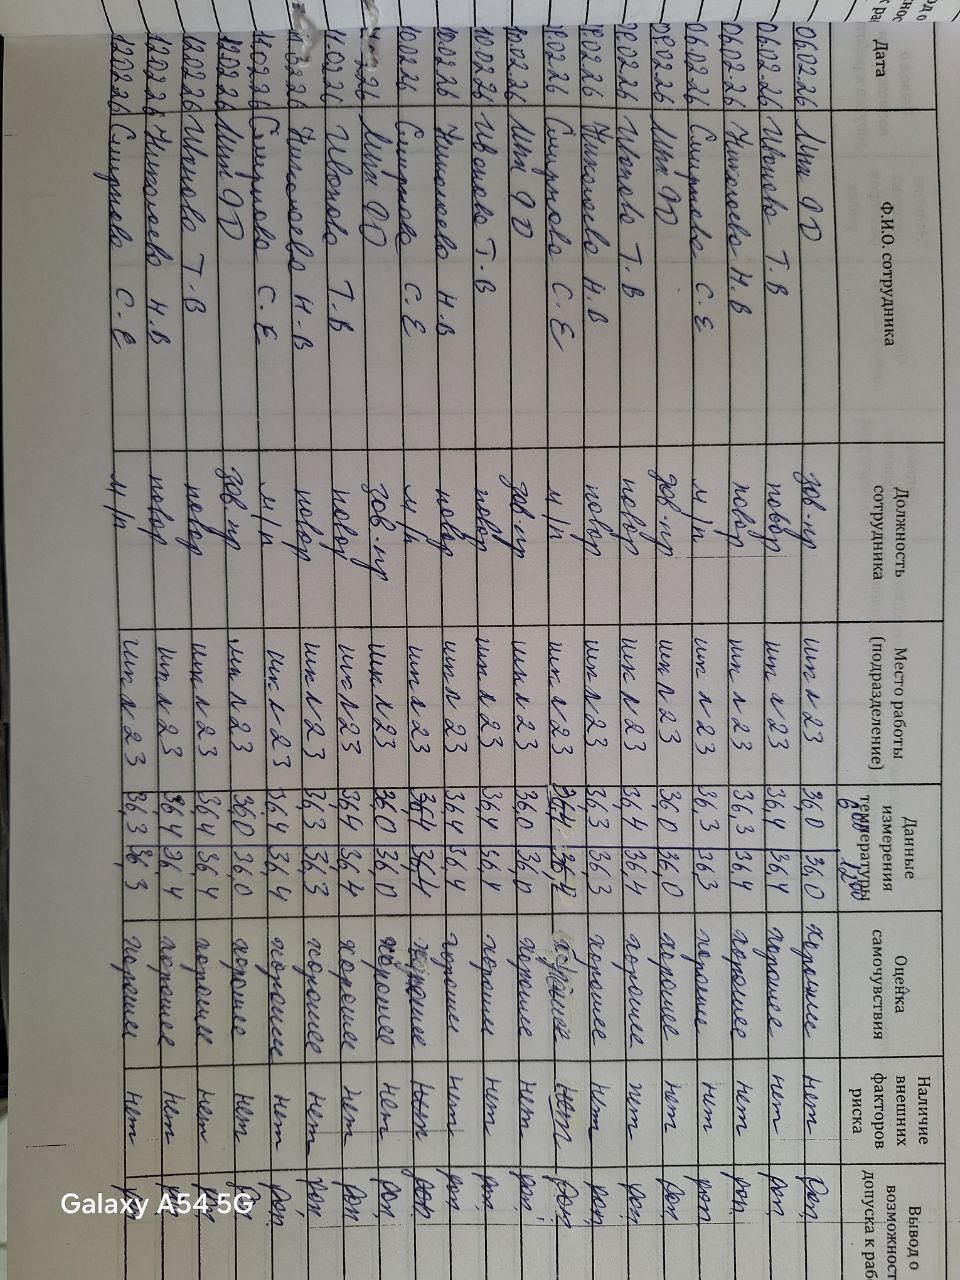 Дата Ф.И.О. сотрудника Должность сотрудника Место работы (подразделение) Данные измерения температуры Оценка самочувствия Наличие внешних факторов риска Вывод о возможност допуска к раб
8 00 12 00
06.02.26 Мин зав.пр шк л 23 36,0 36,0 хорошее нет доп
06.02.26 Иванова Т.В повар шк л 23 36,4 36,4 хорошее нет доп
06.02.26 Николаева Н.В повар шк л 23 36,3 36,4 хорошее нет доп
06.02.26 Смирнова С.Е м/п шк л 23 36,3 36,3 хорошее нет доп
09.02.26 Мин зав.пр шк л 23 36,0 36,0 хорошее нет доп
09.02.26 Иванова Т.В повар шк л 23 36,4 36,4 хорошее нет доп
09.02.26 Николаева Н.В повар шк л 23 36,3 36,3 хорошее нет доп
09.02.26 Смирнова С.Е м/п шк л 23 36,4 хорошее нет доп
10.02.26 Мин зав.пр шк л 23 36,0 36,0 хорошее нет доп
10.02.26 Иванова Т.В повар шк л 23 36,4 36,4 хорошее нет доп
10.02.26 Николаева Н.В повар шк л 23 36,4 36,4 хорошее нет доп
10.02.26 Смирнова С.Е м/п шк л 23 36,4 36,4 хорошее нет доп
Мин зав.пр шк л 23 36,0 36,0 хорошее нет доп
11.02.26 Иванова Т.В повар шк л 23 36,4 36,4 хорошее нет доп
11.02.26 Николаева Н.В повар шк л 23 36,3 36,3 хорошее нет доп
11.02.26 Смирнова С.Е м/п шк л 23 36,4 36,4 хорошее нет доп
12.02.26 Мин зав.пр шк л 23 36,0 36,0 хорошее нет доп
12.02.26 Иванова Т.В повар шк л 23 36,4 36,4 хорошее нет доп
12.02.26 Николаева Н.В повар шк л 23 36,4 36,4 хорошее нет доп
12.02.26 Смирнова С.Е м/п шк л 23 36,3 36,3 хорошее нет доп
Galaxy A54 5G